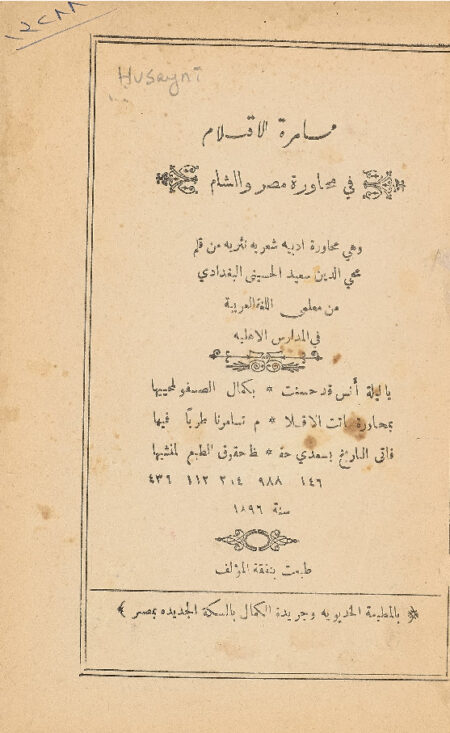 ١٢٨٨
Husayni
مسامرة الاقـلام
في محاورة مصر والشام
وهي محاورة ادبيه شعريه نثريه من قلم
محي الدين سعيد الحسيني البغدادي
من معلمي اللغة العربية
في المدارس الاهليه
يا ليلة أنس قد حسنت * بكمال الصفو لمحييها
بمحاورة باتت الاقلا * م تسامرنا طرباً فيها
فاتى التاريخ بسعدي حفـ * ظ حقوق الطبع لمنشيها
١٤٦ ٩٨٨ ٢٠٤ ١١٢ ٤٣٦
سنة ١٨٩٦
طبعت بنفقة المؤلف
بالمطبعة الخديويه وجريدة الكمال بالسكة الجديده بمصر